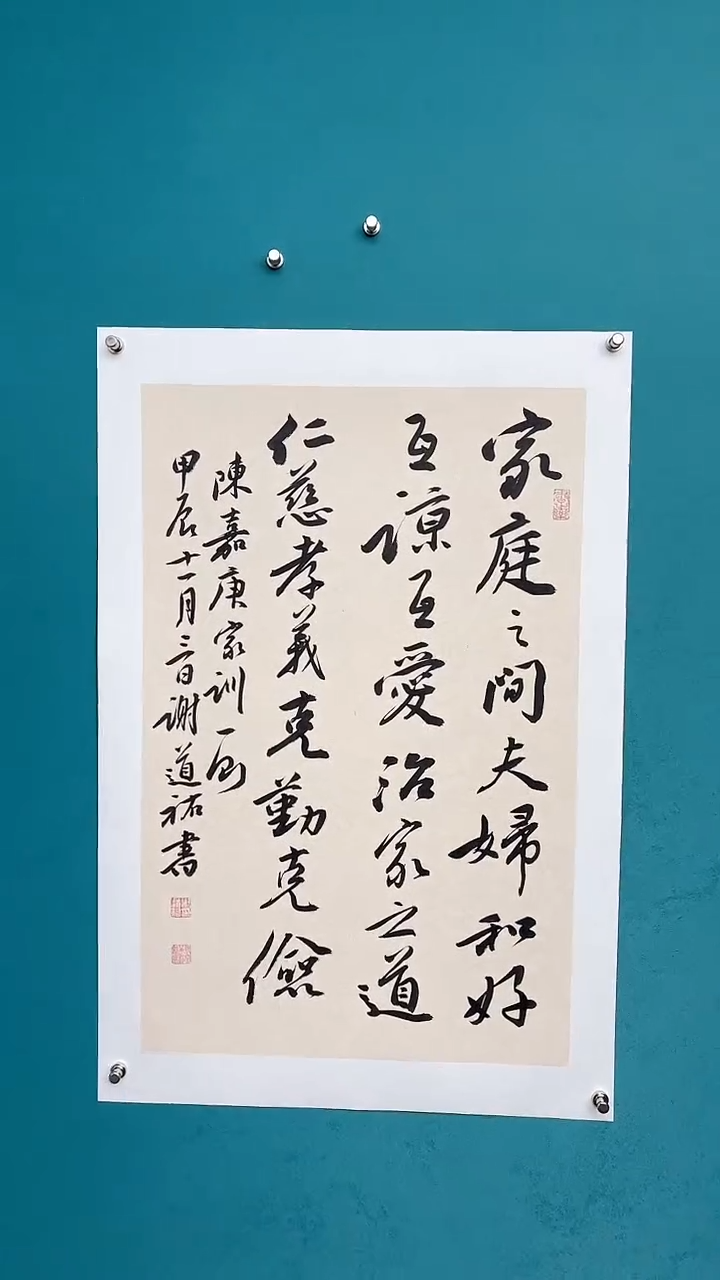 家庭之間夫婦和好
互諒互愛治家之道
仁慈孝義克勤克儉
陳嘉庚家訓一則
甲辰十一月三日謝道祐書